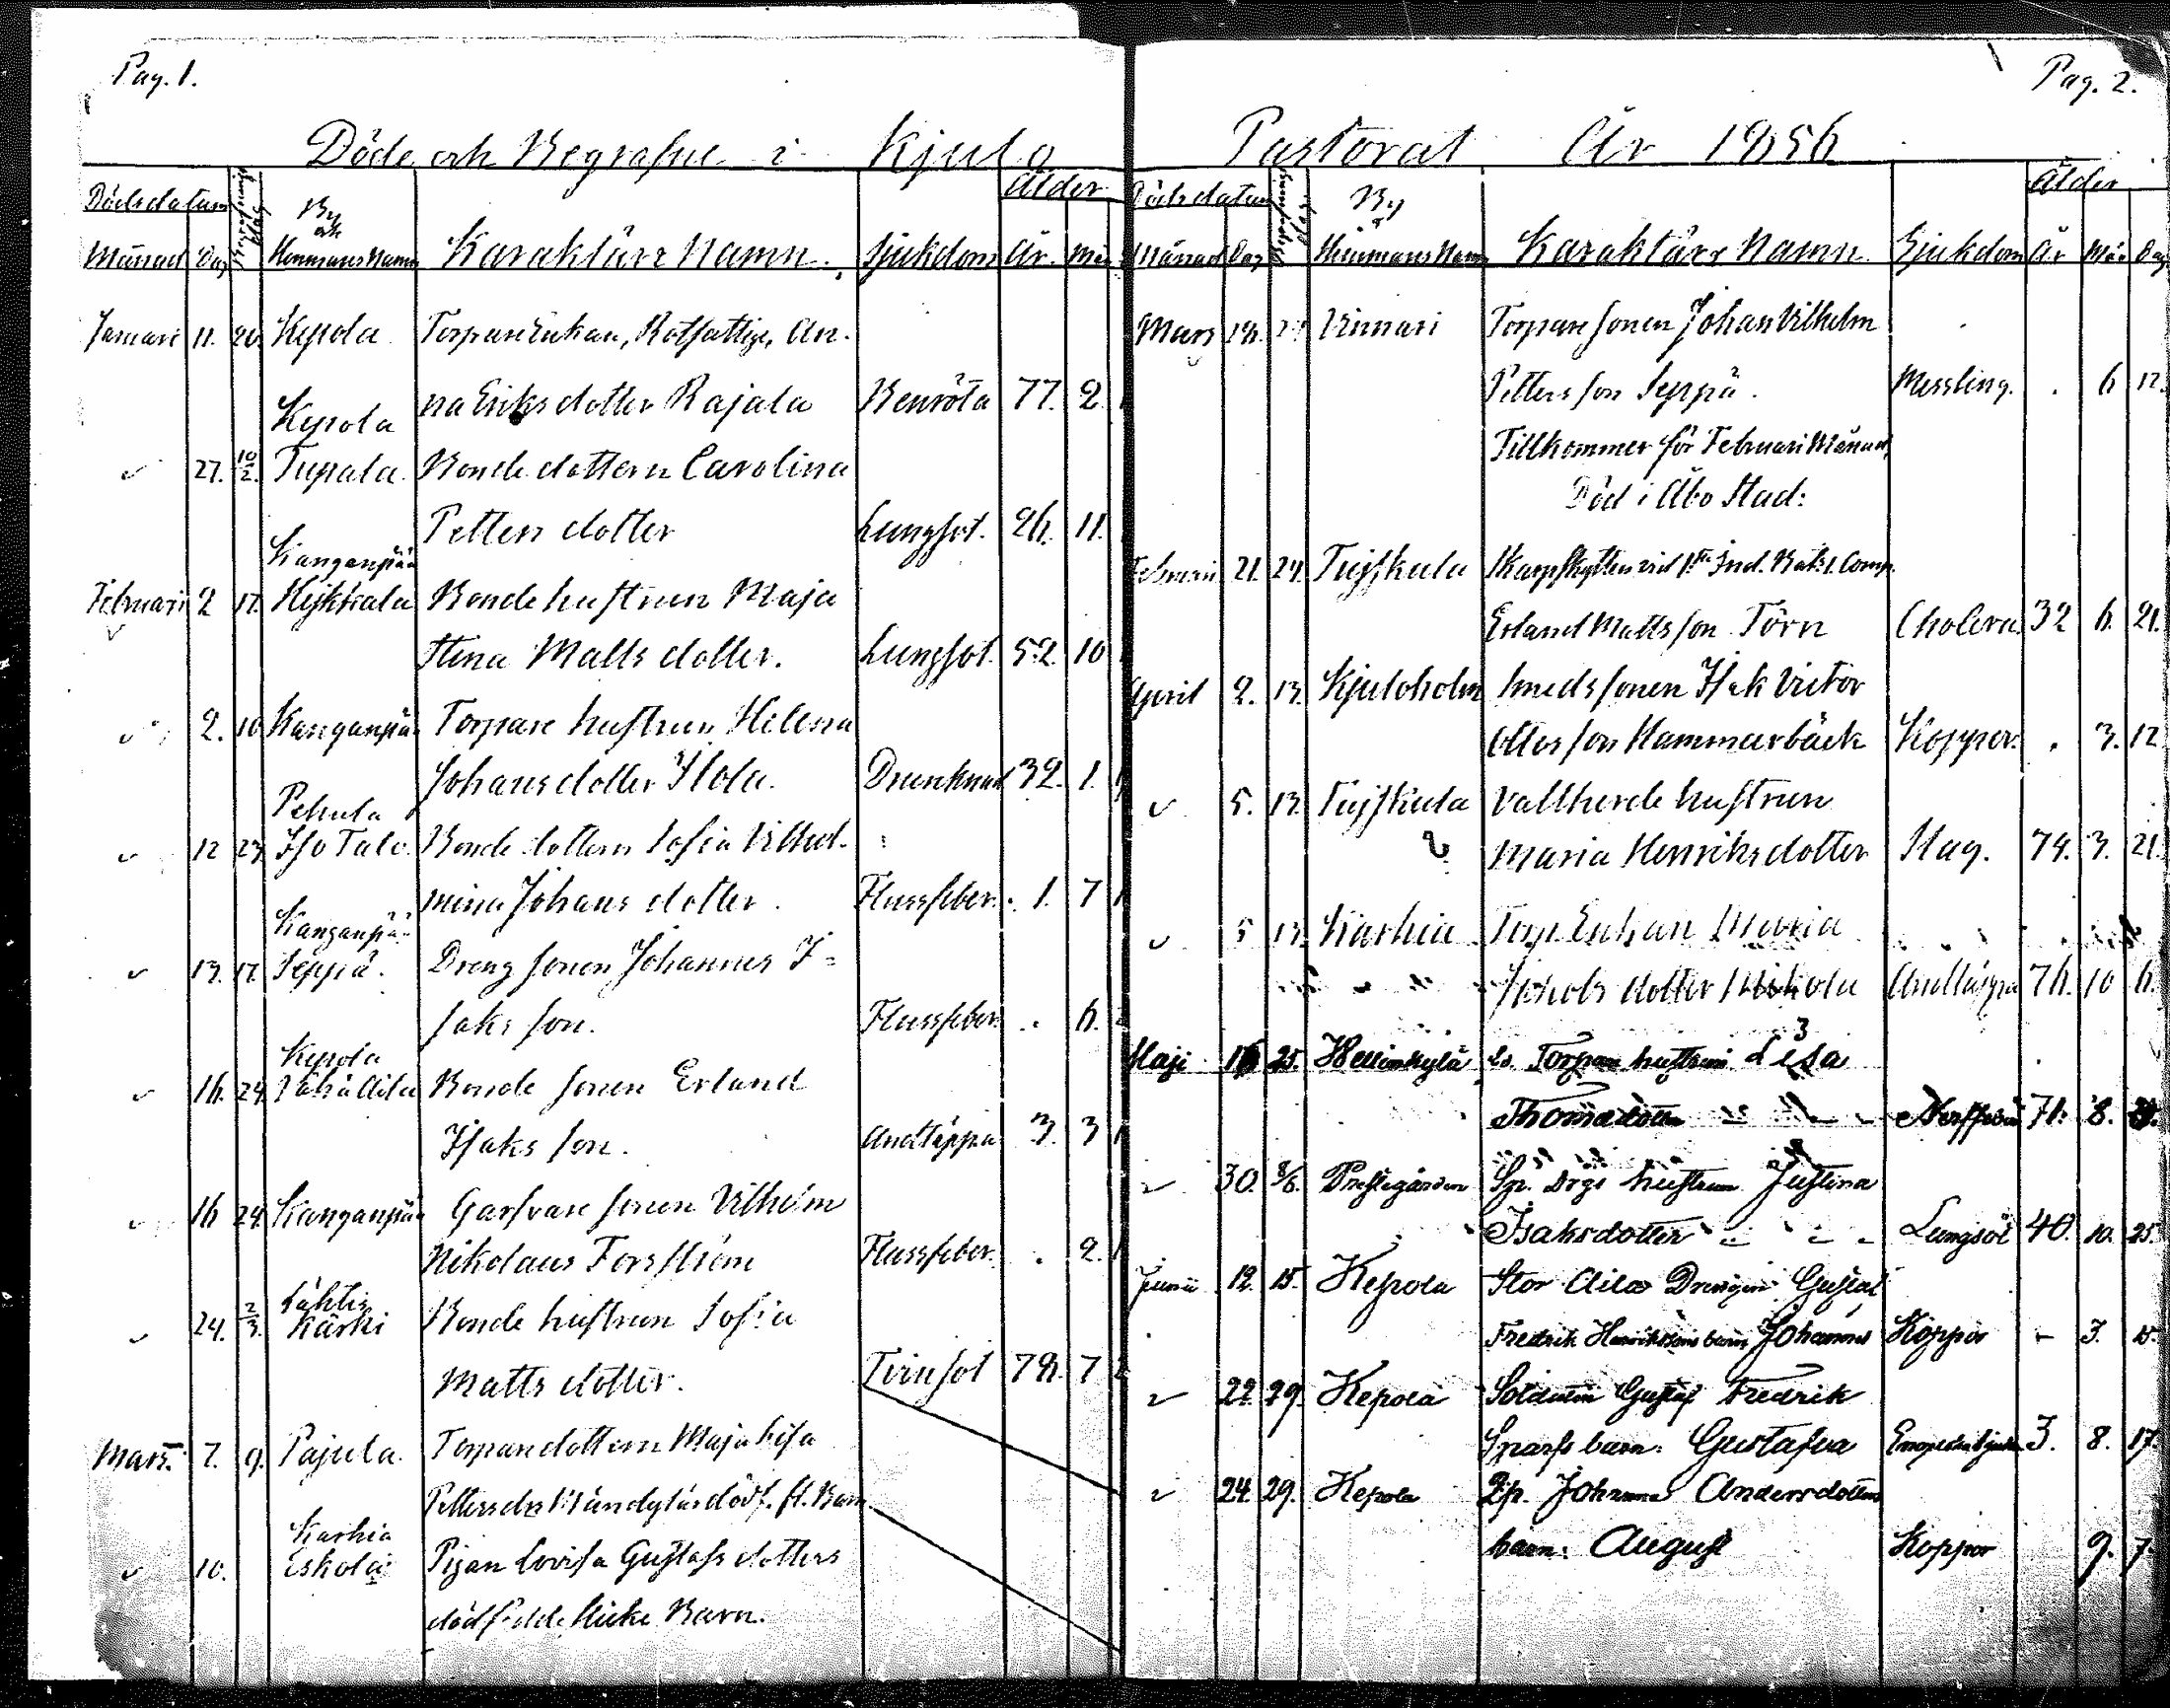 Pag. 1.
Döde och Begrafne i Kjulo
Dödsdatum Begrafnings dag By och Hemmans Namn Karaktär Namn. Sjukdom Ålder
Månad Dag År. Mån
Januari 11. 20. Kepola Torpare Enkan, Rotfattige, An-
na Eriksdotter Rajala Benröta 77. 2
Kepola
27. 10/2. Tupala. Bonde dottern Carolina
Petters dotter Lungsot. 26. 11.
Kanganpää
Februari 2 17. Hejkkala Bonde hustrun Maja
Stina Matts dotter. Lungsot. 52. 10
2. 10 Kanganpää Torpare hustrun Helena
Johans dotter Flola. Drunknad 32. 1.
Pehula
12 23. Iso Talo. Bonde dottern Sofia Vilhel-
mina Johans dotter. Flussfeber. 1. 7
Kanganpää
13. 17. Seppä. Dreng sonen Johannes I=
saks son. Flussfeber. . 6.
Kepola
16. 24. Vähä Aila Bonde sonen Erland
Isaks son. Andtäppa 3. 3
16 24. Kanganpää Garfvare sonen Vilhelm
Nikolaus Forsström Flussfeber. . 2.
Lähtis
24. 2/3. Kärki Bonde hustrun Sofia
Matts dotter. Tvinsot 78. 7
Mars. 7. 9. Pajula. Torpare dottern Maja Lisa
Pettersdrs dödf. fl. Barn.
Karhia
10. Eskola Pigan Lovisa Gustafs dotters
dödfödde Barn.
Pag. 2.
Pastorat År 1856
Dödsdatum Begrafnings dag By o Hemmans Namn Karaktär Namn Sjukdom Ålder
Månad Dag År Mån Dag
Mars 18. Vinnari Torpare sonen Johan Vilhelm
Petters son Seppä. Messling. . 6 12.
Tillkommer för Februari Månad,
Död i Åbo Stad:
Februari 21. 24. Tujskula Skarpskytten vid 1sta Ind. Bat. 1. Comp.
Erland Matts son Törn Cholera 32 6. 21.
April 2. 13. Kjuloholm Smeds sonen Isak Victor
Ottos son Hammarbäck Koppor. . 3. 12
5. 13. Tujskula Vallherde hustrun
Maria Henriks dotter Slag. 74. 3. 21.
5 13. Karhia Torp. Enkan Maria
Jakobs dotter Mikola Andtäppa 76. 10 6.
Maji 16 25. Hellinkylä Torpare hustrun Lisa
Thomasdotter 71. 8.
30. 8/6. Prestegården Sp. Drgs hustrun Justina
Isaksdotter Lungsot 40. 10. 25.
Junii 12. 15. Kepola Stor Aila Drengen Gustaf
Fredrik Henrikssons barn Johannes Koppor - 3. 15.
22. 29. Kepola Soldaten Gustaf Fredrik
Sparfs barn: Gustafva 3. 8. 17.
24. 29. Kepola Pp. Johanna Andersdotters
barn: August Koppor 9. 7.